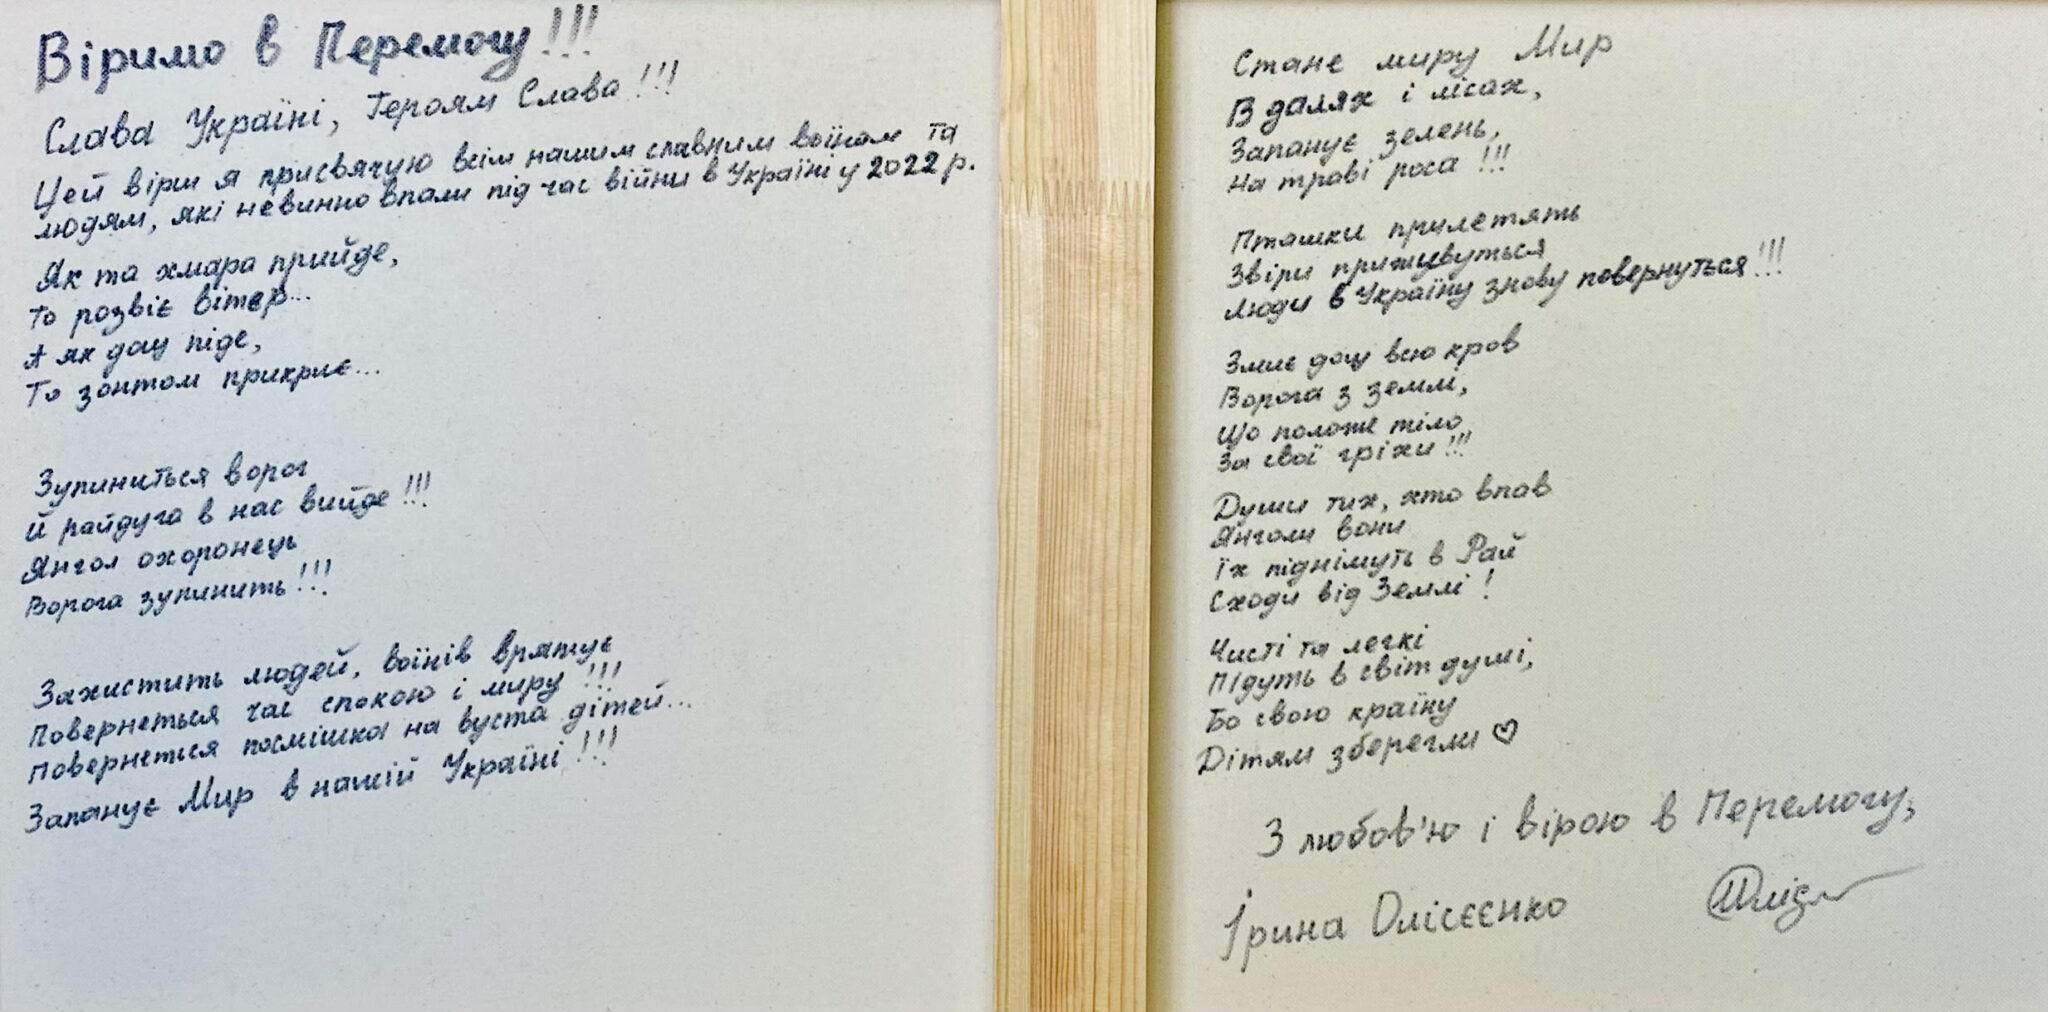 Віримо в Перемогу!!!
Слава Україні, Героям Слава!!!
Цей вірш я присвячую всім нашим славним воїнам та
людям, які невинно впали під час війни в Україні у 2022 р.
Як та хмара прийде,
То розвіє вітер...
А як дощ піде,
То зонтом прикриє...
Зупиниться ворог
Й райдуга в нас вийде!!!
Янгол охоронець
Ворога зупинить!!!
Захистить людей, воїнів врятує
Повернеться час спокою і миру!!!
Повернется посмішка на вуста дітей...
Запанує Мир в нашій Україні!!!
Стане миру Мир
В далях і лісах,
Запанує зелень,
На траві роса!!!
Пташки прилетять
Звіри приживуться
Люди в Україну знову повернуться!!!
Змиє дощ всю кров
Ворога з землі,
Що положе тіло
За свої гріхи!!!
Души тих, хто впав
Янголи вони
Їх піднімуть в Рай
Сходи від Землі!
Чисті та легкі
Підуть в світ думі,
Бо свою країну
Дітям зберегли ♡
З любов'ю і вірою в Перемогу,
Ірина Олісєєнко